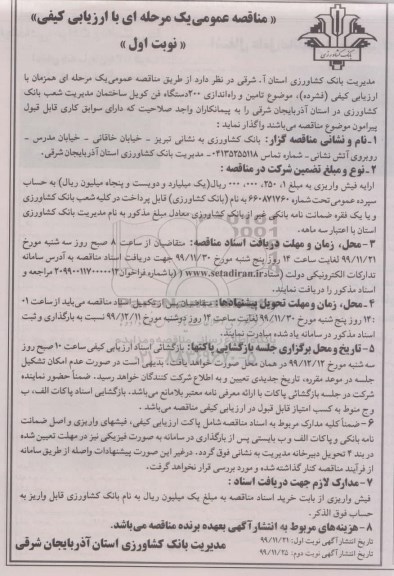 « مناقصه عمومی یک مرحله ای با ارزیابی کیفی»
« نوبت اول »
بانک کشاورزی
مدیریت بانک کشاورزی استان آ- شرقی در نظر دارد از طریق مناقصه عمومی یک مرحله ای همزمان با
ارزیابی کیفی (فشرده)، موضوع تامین و راه‌اندازی ۲۰۰دستگاه فن کویل ساختمان مدیریت شعب بانک
کشاورزی در استان آذربایجان شرقی را به پیمانکاران واجد صلاحیت که دارای سوابق کاری قابل قبول
پیرامون موضوع مناقصه می‌باشند واگذار نماید :
۱-نام و نشانی مناقصه گزار: بانک کشاورزی به نشانی تبریز - خیابان خاقانی - خیابان مدرس -
روبروی آتش نشانی - شماره تماس ۰۴۱۳۵۲۵۵۱۱۸- مدیریت بانک کشاورزی استان آذربایجان شرقی.
۲-نوع و مبلغ تضمین شرکت در مناقصه :
ارایه فیش واریزی به مبلغ ۱، ۲۵۰، ۰۰۰، ۰۰۰ ریال(یک میلیارد و دویست و پنجاه میلیون ریال) به حساب
سپرده عمومی تحت شماره ۶۶۰۸۷۱۷۶۰ به نام (بانک کشاورزی) قابل پرداخت در کلیه شعب بانک کشاورزی
و یا یک فقره ضمانت نامه بانکی غیر از بانک کشاورزی معادل مبلغ مذکور به نام مدیریت بانک کشاورزی
استان با اعتبار سه ماهه.
۳-محل، زمان و مهلت دریافت اسناد مناقصه: متقاضیان از ساعت ۸ صبح روز سه شنبه مورخ
۹۹/۱۱/۲۱ لغایت ساعت ۱۴ روز پنج شنبه مورخ ۹۹/۱۱/۳۰ جهت دریافت اسناد مناقصه به آدرس سامانه
تدارکات الکترونیکی دولت (ستاد www.setadiran.ir) (با شماره فراخوان ۲۰۹۹۰۰۱۱۷۰۰۰۰۰۱۲ مراجعه و
اسناد مذکور را دریافت نمایند.
۴-محل، زمان و مهلت تحویل پیشنهادها: متقاضیان پس از تکمیل اسناد مناقصه می‌باید از ساعت ۰۱
:۱۴ روز پنج شنبه مورخ ۹۹/۱۱/۳۰ لغایت ساعت ۱۴ روز دوشنبه مورخ ۹۹/۱۲/۱۱ نسبت به بارگذاری و ثبت
اسناد مذکور در سامانه یاد شده مبادرت نمایند.
۵-تاریخ و محل برگزاری جلسه بازگشایی پاکتها: بازگشائی اسناد ارزیابی کیفی ساعت ۱۰صبح روز
سه شنبه مورخ ۹۹/۱۲/۱۲ در همان محل صورت خواهد یافت. بدیهی است در صورت عدم امکان تشکیل
جلسه در موعد مقرره، تاریخ جدیدی تعیین و به اطلاع شرکت کنندگان خواهد رسید. ضمناً حضور نماینده
شرکت در جلسه بازگشائی پاکات با ارائه معرفی نامه معتبر بلامانع می‌باشد. بازگشایی اسناد پاکات الف، ب
وج منوط به کسب امتیاز قابل قبول در ارزیابی کیفی مناقصه می‌باشد .
۶-ضمناً کلیه مدارک مربوط به اسناد مناقصه شامل پاکت ارزیابی کیفی، فیشهای واریزی و اصل ضمانت
نامه بانکی و پاکات الف و ب بایستی پس از بارگذاری در سامانه به صورت فیزیکی نیز در مهلت تعیین شده
در بند ۴ تحویل دبیرخانه مدیریت به نشانی فوق گردد. درغیر این صورت پیشنهادات واصله از طریق سامانه
از فرآیند مناقصه کنار گذاشته شده و مورد بررسی قرار نخواهد گرفت.
۷-مدارک لازم جهت دریافت اسناد :
فیش واریزی از بابت خرید اسناد مناقصه به مبلغ یک میلیون ریال به نام بانک کشاورزی قابل واریز به
حساب فوق الذکر .
۸-هزینه‌های مربوط به انتشار آگهی بعهده برنده مناقصه می‌باشد.
تاریخ انتشار آگهی نوبت اول: ۹۹/۱۱/۲۱
تاریخ انتشار آگهی نوبت دوم: ۹۹/۱۱/۲۵
مدیریت بانک کشاورزی استان آذربایجان شرقی